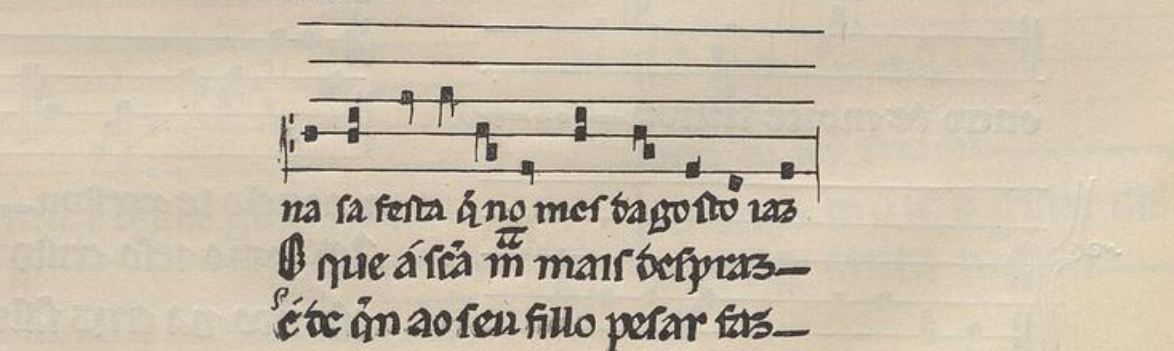 na sa festa q̃ no mes dagosto iaz
O que á scã m̃ mais despraz
é de q̃n ao seu fillo pesar faz